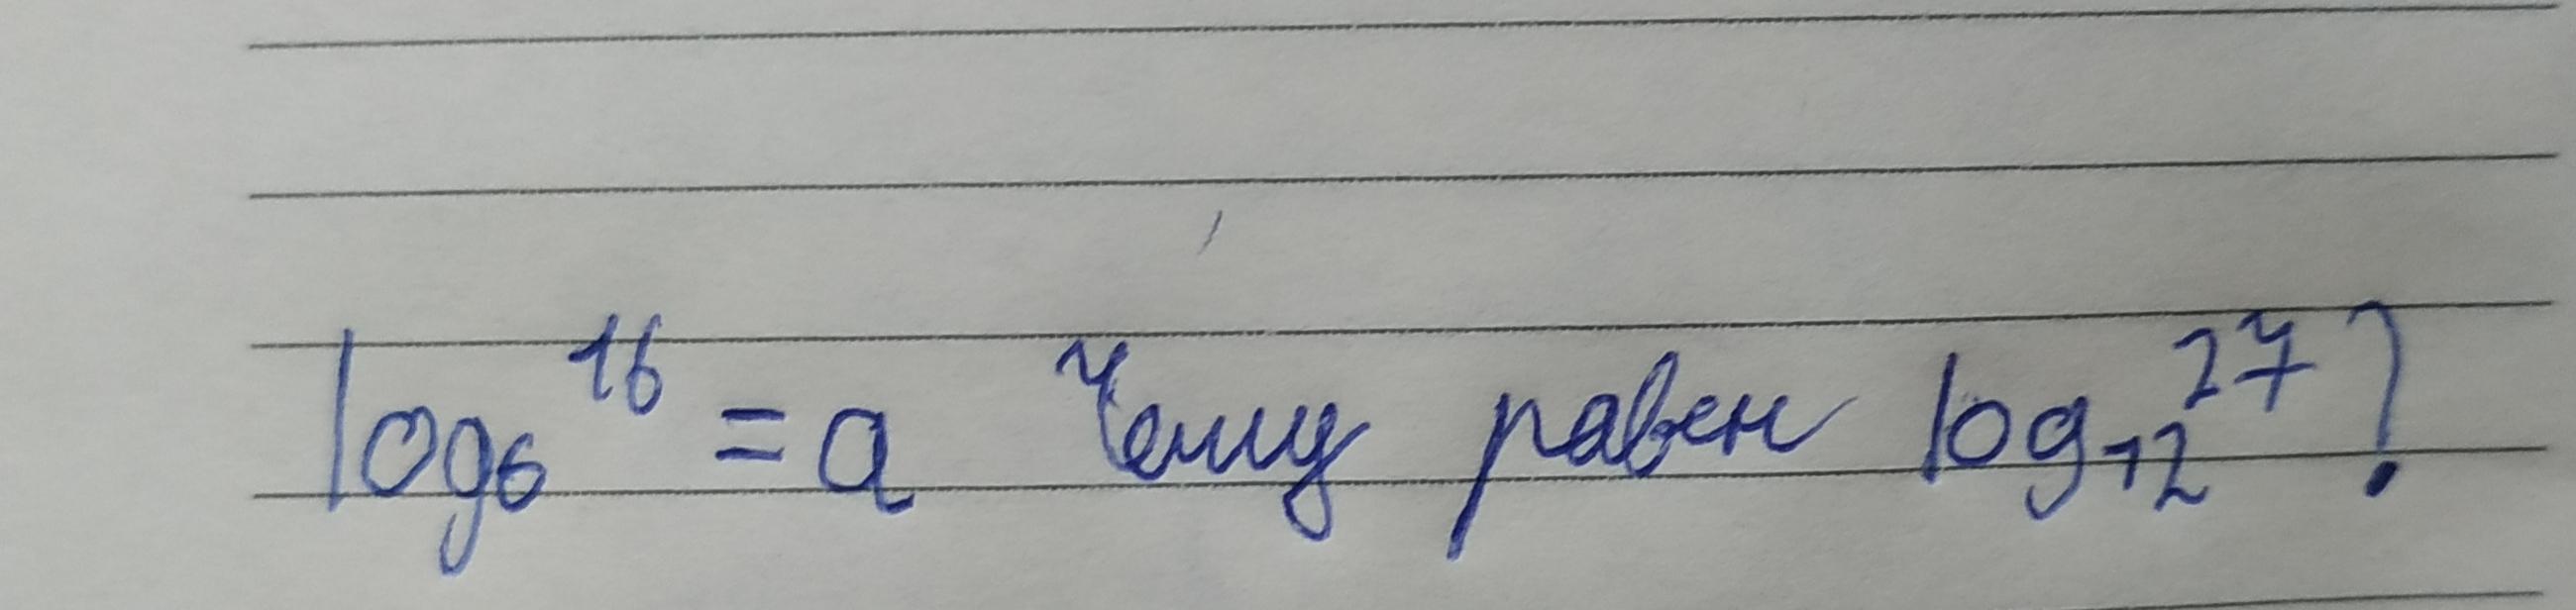 log₆¹⁶ = a Чему равен log₁₂²⁷?